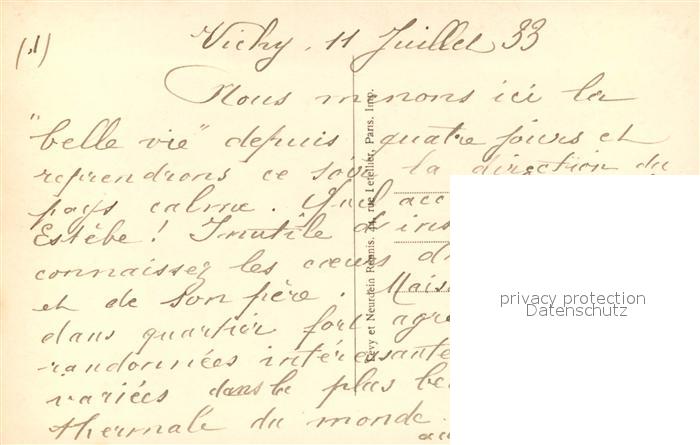 (1)
Vichy, 11 Juillet 33
Nous menons ici la
"belle vie" depuis quatre jours et
reprendrons ce soir la direction du
pays calme. Quel acc
Estèbe ! Inutile d'ins
connaissez les cœurs d
et de son père. Mais
dans quartier fort agré
randonnées intéressante
variées dans la plus be
thermale du monde.
au
Lévy et Neurdein Réunis, 44, rue Letellier, Paris. Imp.
privacy protection
Datenschutz